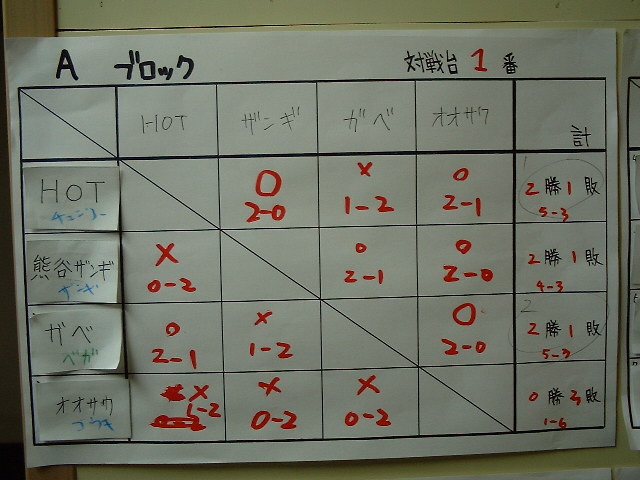 A ブロック 対戦台 1 番
HOT ザンギ ガベ オオサワ 計
HOT チュンリー ○ 2-0 × 1-2 ○ 2-1 2勝1敗 5-3
熊谷ザンギ ザンギ × 0-2 ○ 2-1 ○ 2-0 2勝1敗 4-3
ガベ ベガ ○ 2-1 × 1-2 ○ 2-0 2勝1敗 5-3 2
オオサワ × 1-2 × 0-2 × 0-2 0勝3敗 1-6